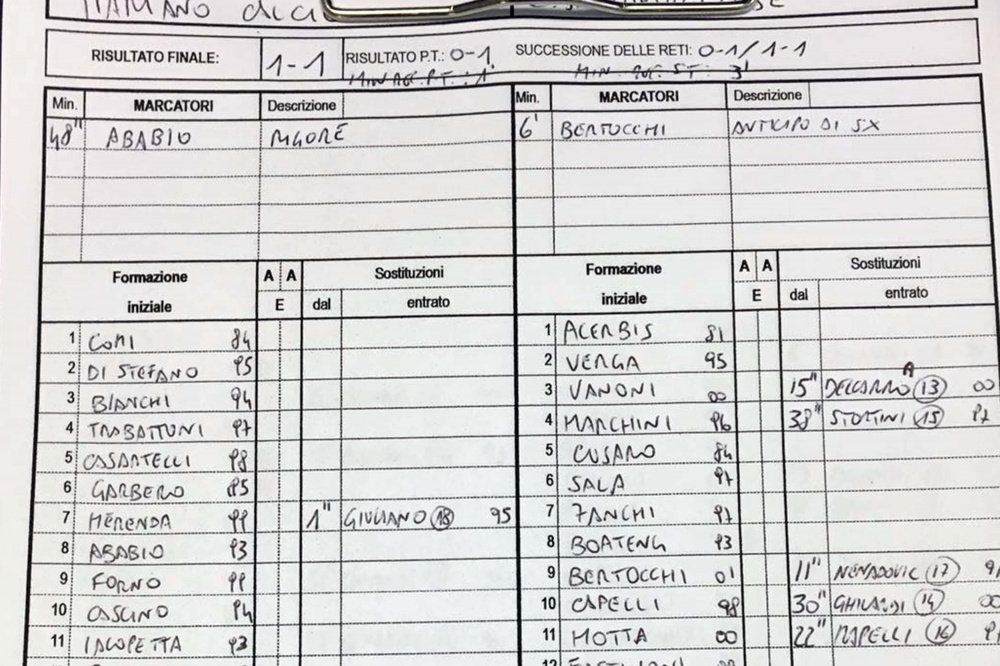 RISULTATO FINALE: 1-1 RISULTATO P.T.: 0-1 SUCCESSIONE DELLE RETI: 0-1/1-1
MIN. REC. P.T.: 1' MIN. REC. ST: 3'
Min. MARCATORI Descrizione
48" ABABIO
Min. MARCATORI Descrizione
6' BERTOCCHI ANTICIPO DI SX
Formazione iniziale A A E Sostituzioni dal entrato
1 COMI 84
2 DI STEFANO 95
3 BIANCHI 94
4 TRABATTONI 97
5 CASARTELLI 98
6 GARBERO 85
7 MERENDA 99 1" GIULIANO (18) 95
8 ABABIO 93
9 FORNO 99
10 CASCINO 94
11 IACOPETTA 93
Formazione iniziale A A E Sostituzioni dal entrato
1 ACERBIS 81
2 VERGA 95
3 VANONI 00 15" (13) 00
4 MARCHINI 96 38" (15) 97
5 CUSARO 84
6 SALA 97
7 ZANCHI 97
8 BOATENG 93
9 BERTOCCHI 01 11" NENADOVIC (17)
10 CAPELLI 98 30" GHILARDI (14) 00
11 MOTTA 00 22" RAPELLI (16)
12